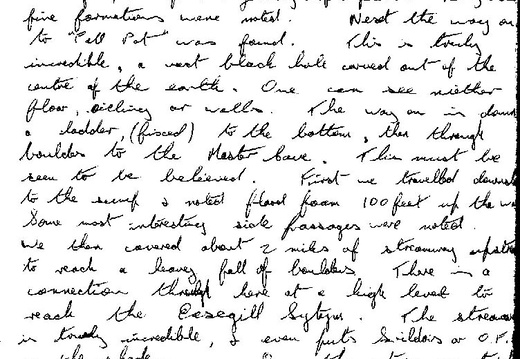 five formations were noted. Next the way on
to "Cell Pot" was found. This is truly
incredible, a vast black hole carved out of the
centre of the earth. One can see neither
floor, ceiling or walls. The way on is down
a ladder, (fixed) to the bottom, then through
boulders to the Master Cave. This must be
seen to be believed. First we travelled
to the sump & noted flood foam 100 feet up the
Some most interesting side passages were noted.
We then covered about 2 miles of streamway
to reach a heavy fall of boulders. There is a
connection through here at a high level to
reach the Easegill System. The
is truly incredible, & even puts or O.F.